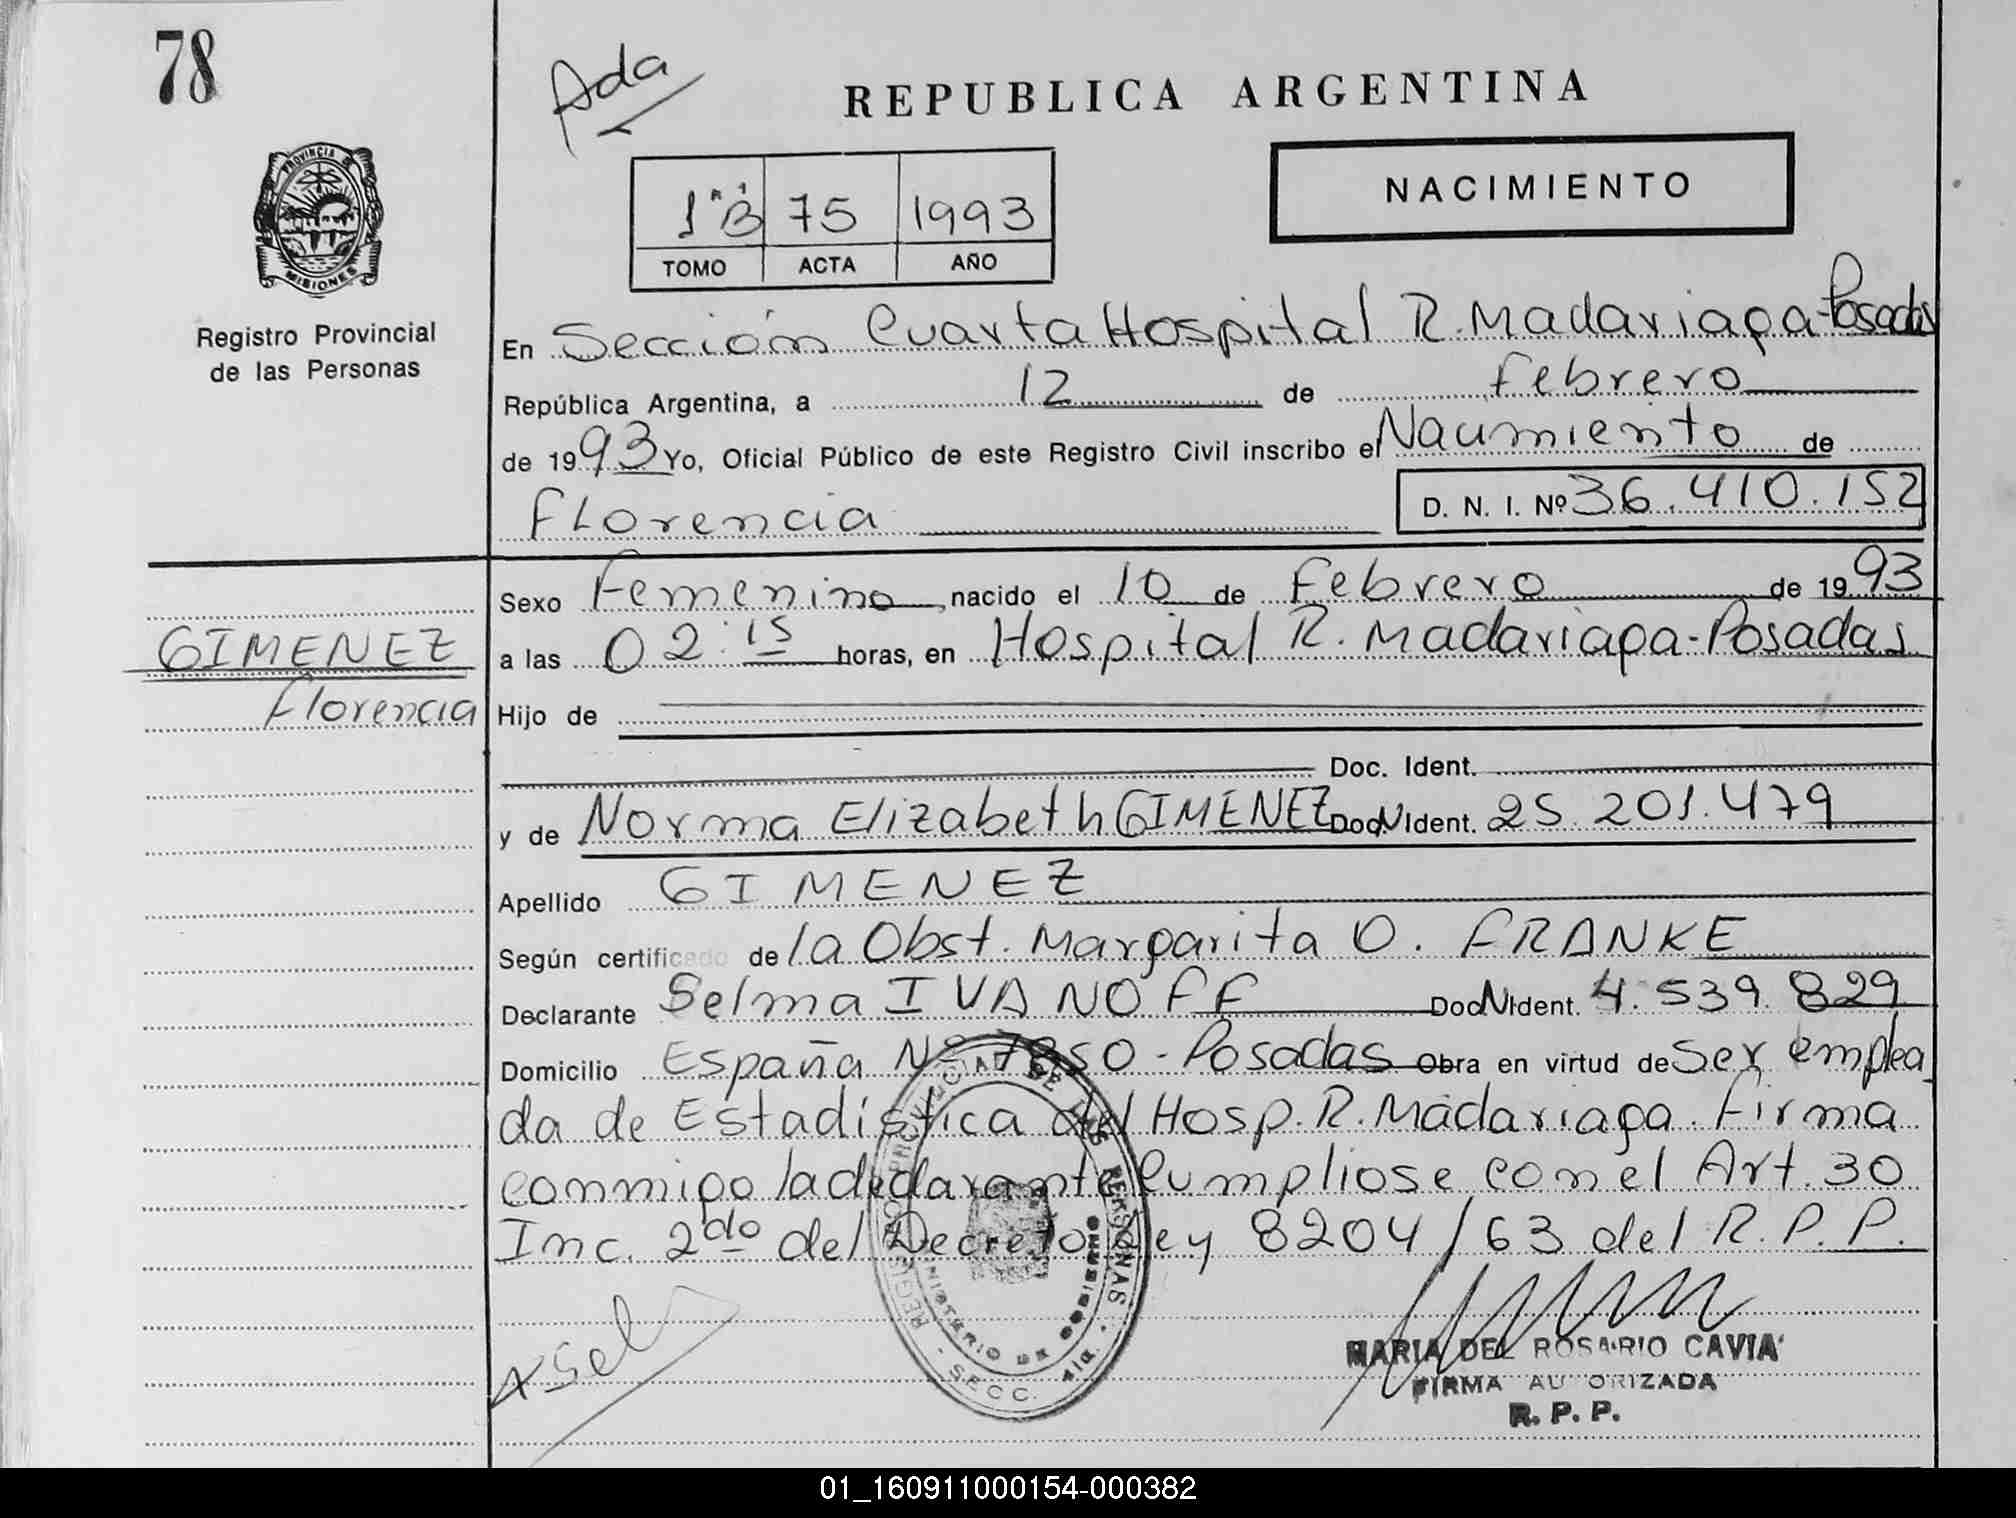 78
Ada
REPUBLICA ARGENTINA
NACIMIENTO
1º B 75 1993
TOMO ACTA AÑO
PROVINCIA DE
MISIONES
Registro Provincial
de las Personas
En Sección Cuarta Hospital R. Madariaga - Posadas
República Argentina, a 12 de Febrero
de 1993 Yo, Oficial Público de este Registro Civil inscribo el Nacimiento de
Florencia D. N. I. Nº 36.410.152
Sexo Femenino, nacido el 10 de Febrero de 1993
GIMENEZ a las 02:15 horas, en Hospital R. Madariaga - Posadas
Florencia Hijo de
Doc. Ident.
y de Norma Elizabeth GIMENEZ Doc N Ident. 25.201.479
Apellido GIMENEZ
Según certificado de la Obst. Margarita O. FRANKE
Declarante Selma IVANOFF Doc N Ident. 4.539.829
Domicilio España Nº 7850 - Posadas Obra en virtud de Ser emplea
da de Estadística del Hosp. R. Madariaga. Firma
conmigo la declarante Cumpliose con el Art. 30
Inc. 2do del Decreto Ley 8204/63 del R. P. P.
REGISTRO PROVINCIAL DE LAS PERSONAS
MINISTERIO DE GOBIERNO
SECC. 4ta.
MARIA DEL ROSARIO CAVIA
FIRMA AUTORIZADA
R. P. P.
01_160911000154-000382